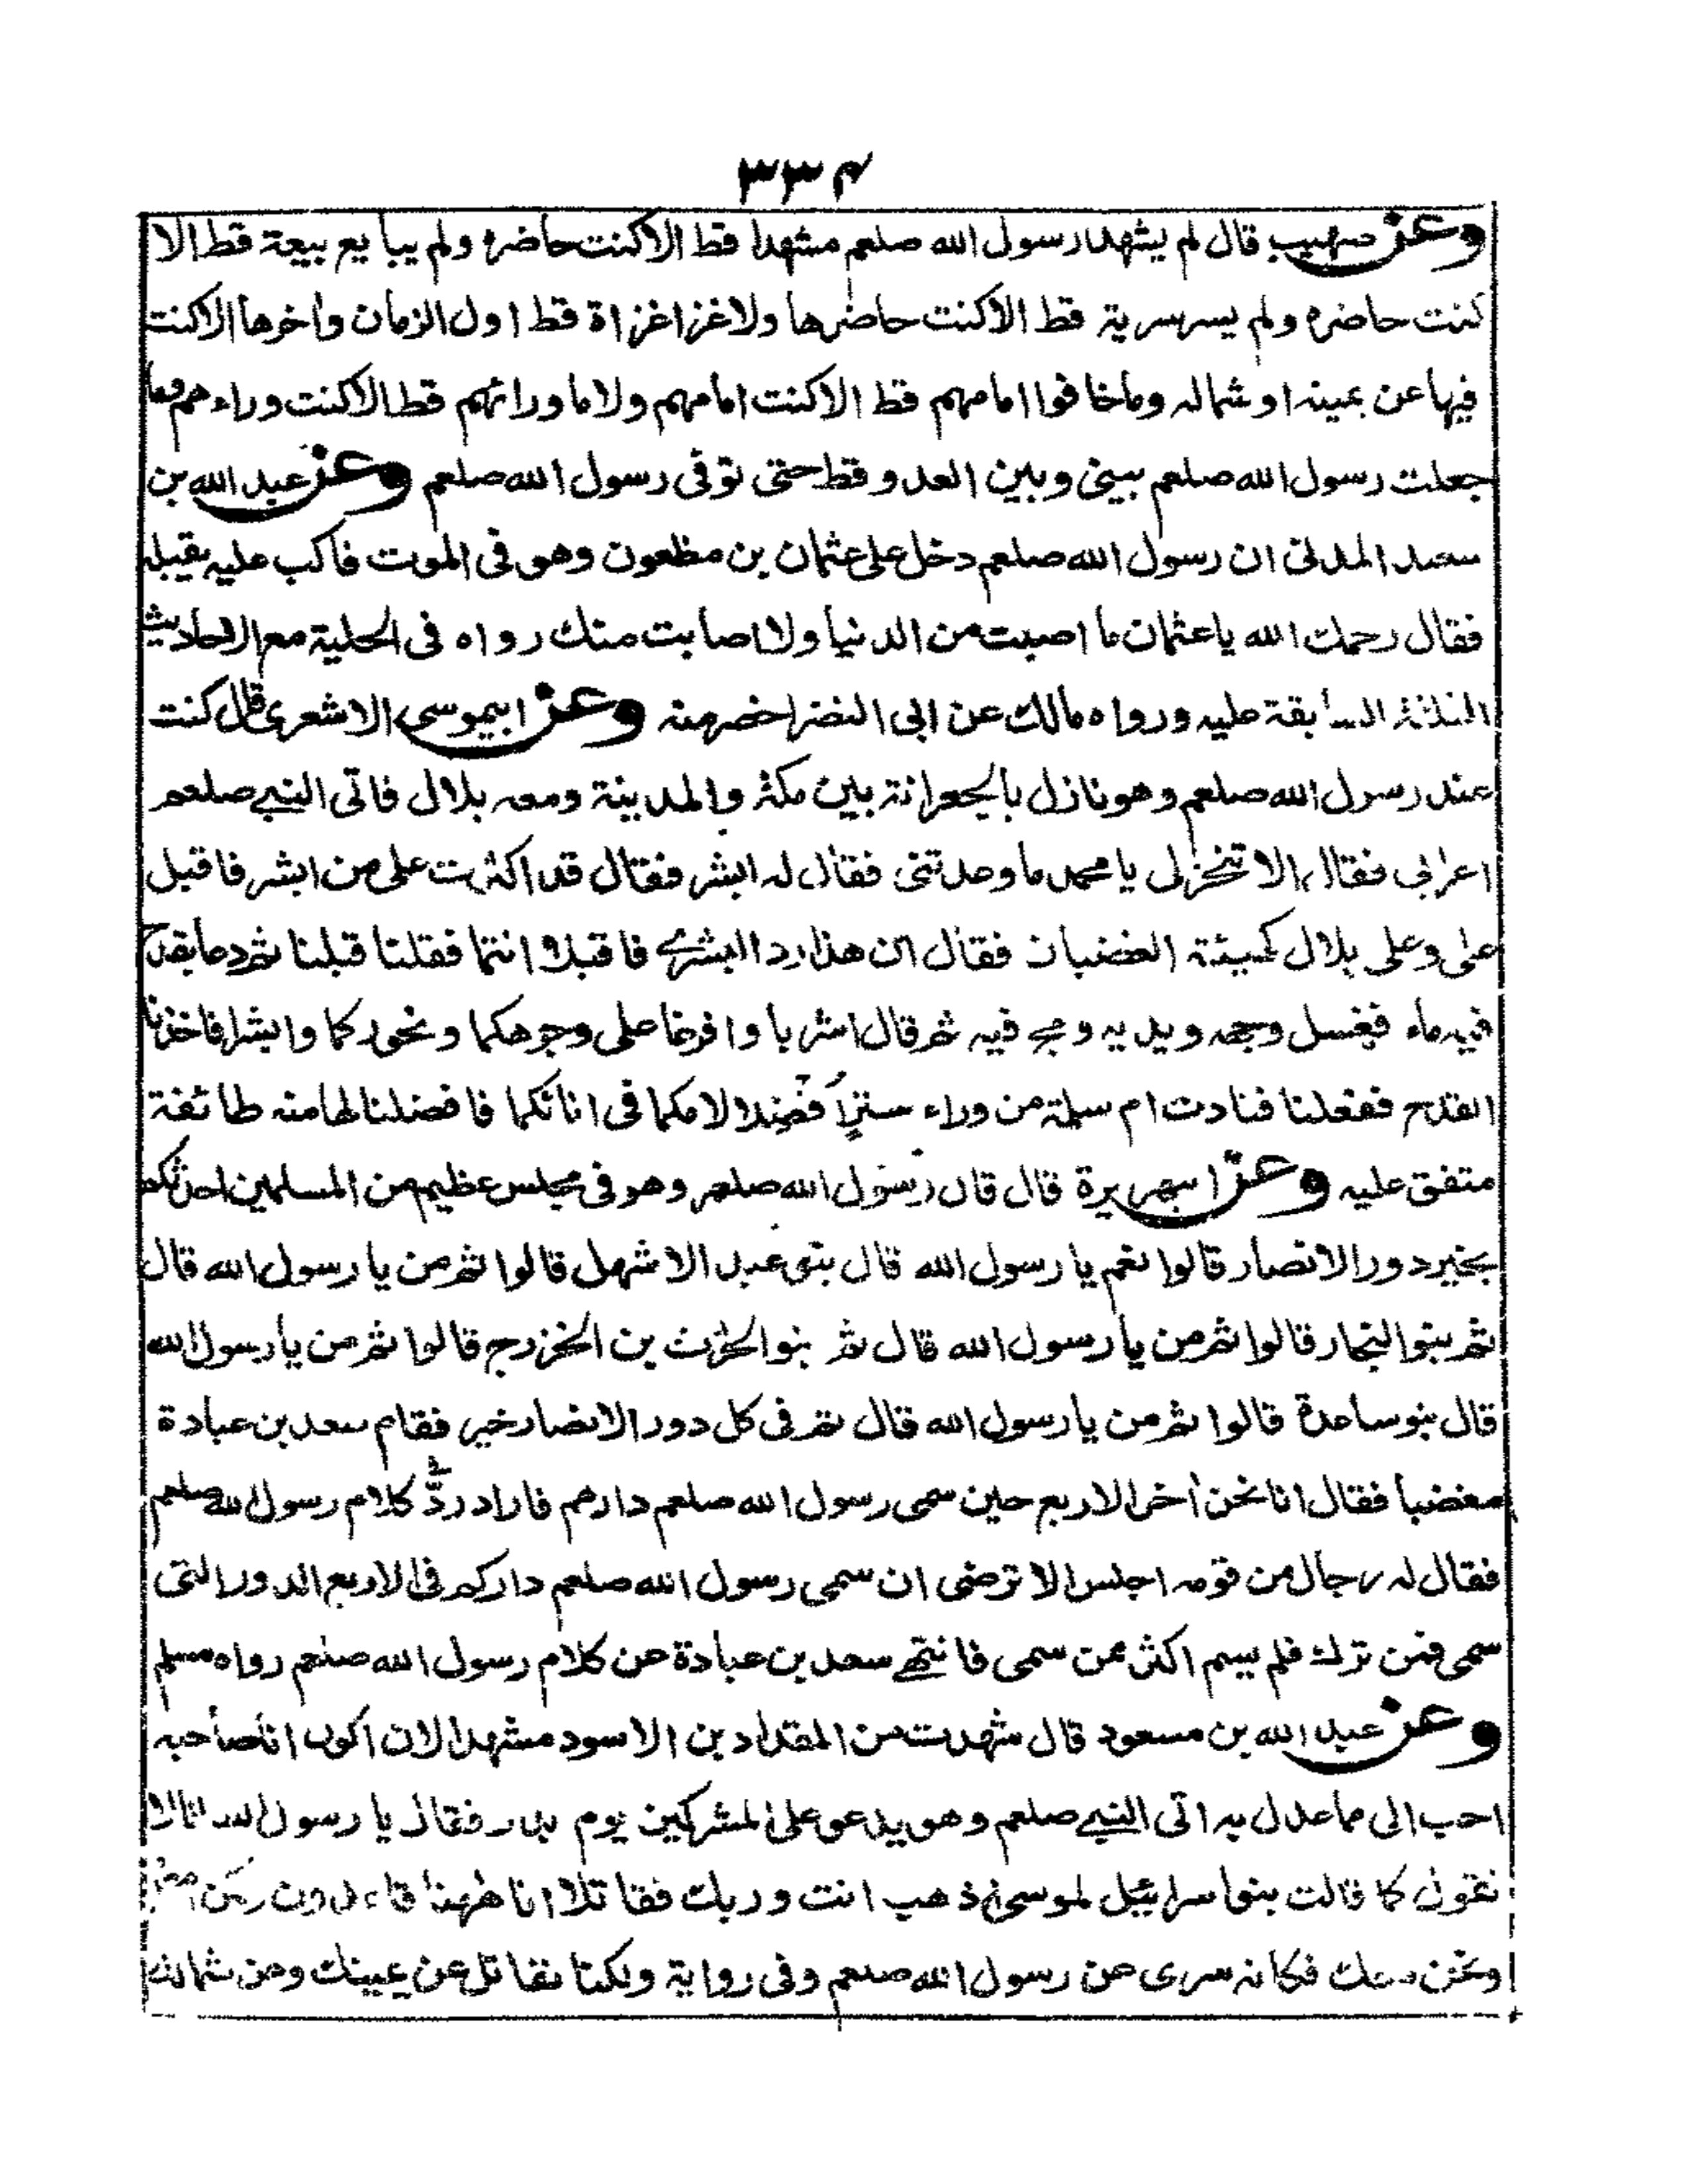 ٣٣٤
وعن صهيب قال لم يشهد رسول الله صلعم مشهدا قط الا كنت حاضره ولم يبايع بيعة قط الا
كنت حاضره ولم يسر سرية قط الا كنت حاضرها ولا غزا غزاة قط اول الزمان واخرها الا كنت
فيها عن يمينه او شماله وما خافوا امامهم قط الا كنت امامهم ولا ما ورائهم قط الا كنت وراءهم وما
جعلت رسول الله صلعم بينى وبين العدو قط حتى توفى رسول الله صلعم وعن عبد الله بن
سعد المدنى ان رسول الله صلعم دخل على عثمان بن مظعون وهو فى الموت فاكب عليه يقبله
فقال رحمك الله يا عثمان ما اصبت من الدنيا ولا اصابت منك رواه فى الحلية مع الاحاديث
الثلثة السابقة عليه ورواه مالك عن ابى النضر اخصر منه وعن ابيموسى الاشعرى قال كنت
عند رسول الله صلعم وهو نازل بالجعرانة بين مكة والمدينة ومعه بلال فاتى النبى صلعم
اعرابى فقال الا تنجز لى يا محمد ما وعدتنى فقال له ابشر فقال قد اكثرت على من ابشر فاقبل
على وعلى بلال كهيئة الغضبان فقال ان هذا رد البشرى فاقبلا انتما فقلنا قبلنا ثم دعا بقدح
فيه ماء فغسل وجهه ويديه ومج فيه ثم قال اشربا وافرغا على وجوهكما ونحوركما وابشرا فاخذنا
القدح ففعلنا فنادت ام سلمة من وراء ستر افضلا لامكما فى انائكما فافضلنا لها منه طائفة
متفق عليه وعن ابيهريرة قال قال رسول الله صلعم وهو فى مجلس عظيم من المسلمين احدثكم
بخير دور الانصار قالوا نعم يا رسول الله قال بنو عبد الاشهل قالوا ثم من يا رسول الله قال
ثم بنو النجار قالوا ثم من يا رسول الله قال ثم بنو الحرث بن الخزرج قالوا ثم من يا رسول الله
قال بنو ساعدة قالوا ثم من يا رسول الله قال ثم فى كل دور الانصار خير فقام سعد بن عبادة
مغضبا فقال انا نحن اخر الاربع حين سمى رسول الله صلعم دارهم فاراد ردّ كلام رسول الله صلعم
فقال له رجال من قومه اجلس الا ترضى ان سمى رسول الله صلعم داركم فى الاربع الدور التى
سمى فمن ترك فلم يسم اكثر ممن سمى فانتهى سعد بن عبادة عن كلام رسول الله صلعم رواه مسلم
وعن عبد الله بن مسعود قال شهدت من المقداد بن الاسود مشهدا لان اكون انا صاحبه
احب الى مما عدل به اتى النبى صلعم وهو يدعو على المشركين يوم بدر فقال يا رسول الله انا لا
نقول كما قالت بنو اسرائيل لموسى اذهب انت وربك فقاتلا انا ههنا قاعدون ولكن امض
ونحن معك فكانه سرى عن رسول الله صلعم وفى رواية ولكنا نقاتل عن يمينك وعن شمالك